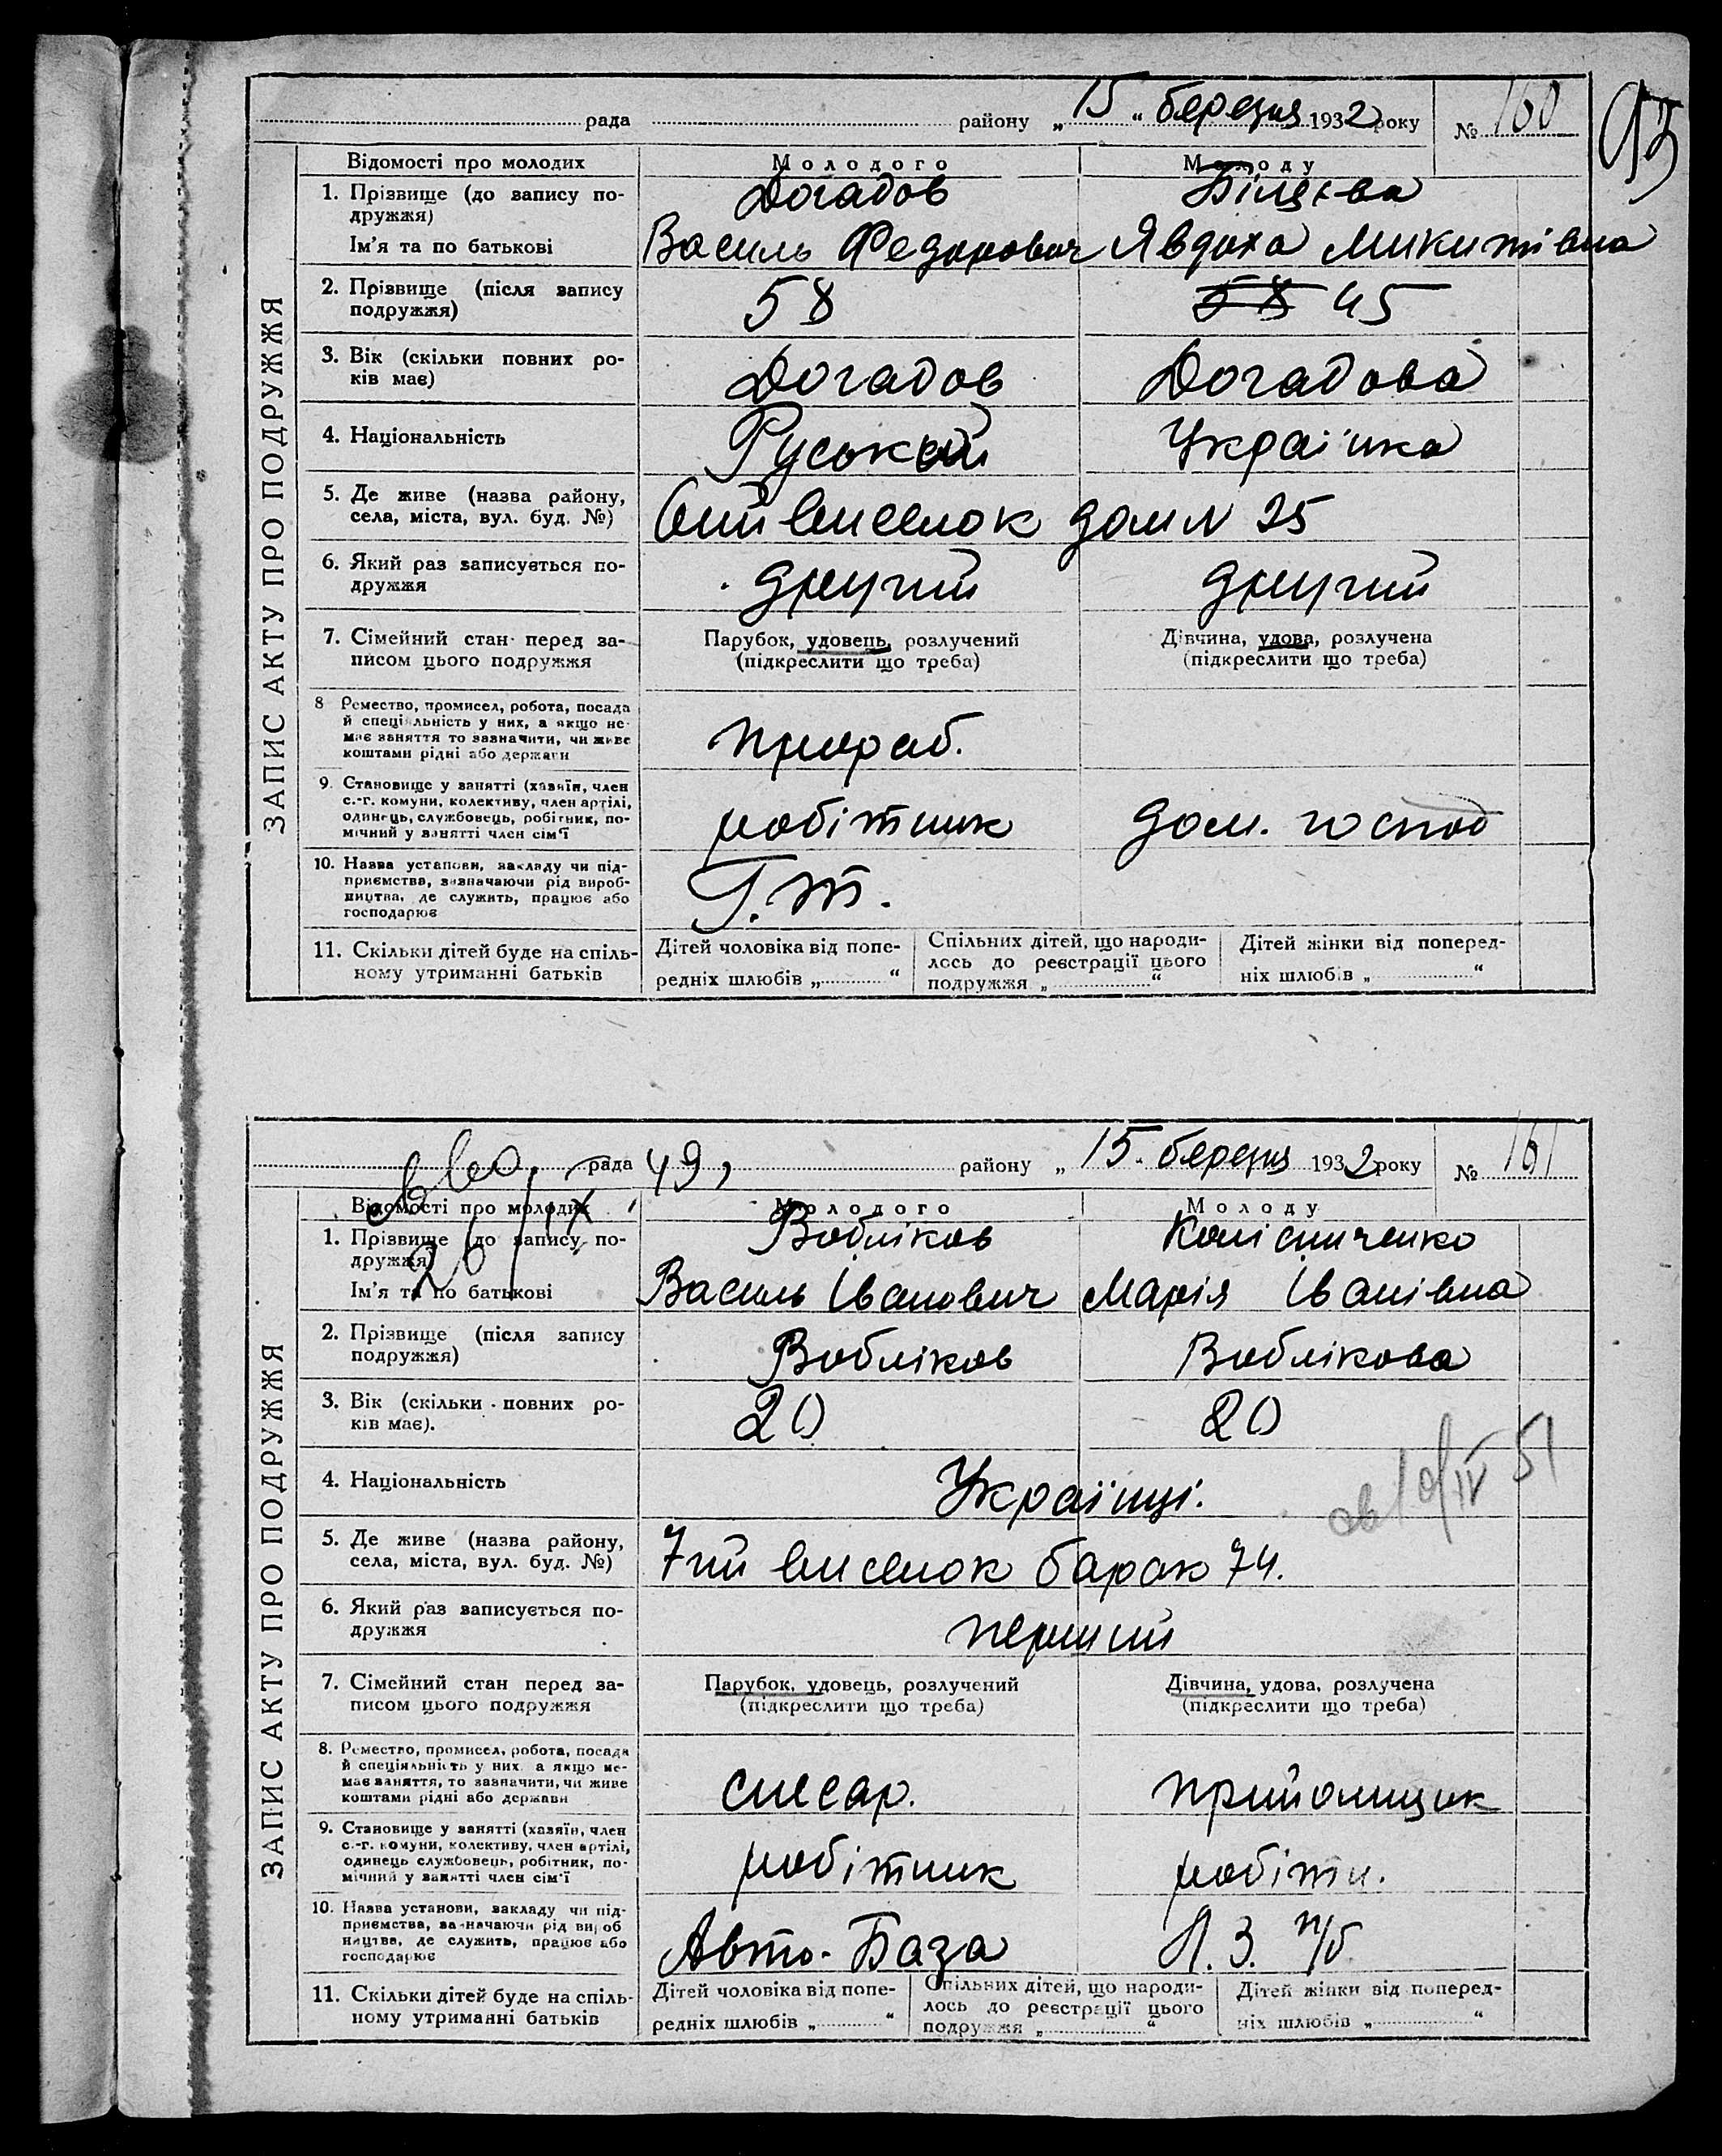 рада району „15“ березня 1932 року № 160
93
ЗАПИС АКТУ ПРО ПОДРУЖЖЯ
Відомості про молодих Молодого Молоду
1. Прізвище (до запису по-
дружжя) Догадов
Ім'я та по батькові Василь Федорович Явдоха Микитівна
2. Прізвище (після запису
подружжя) 58 58 45
3. Вік (скільки повних ро-
ків має) Догадов Догадова
4. Національність Руський Українка
5. Де живе (назва району,
села, міста, вул. буд. №) 6ий виселок дом N 25
6. Який раз записується по-
дружжя другий другий
7. Сімейний стан перед за-
писом цього подружжя
Парубок, удовець, розлучений
(підкреслити що треба)
Дівчина, удова, розлучена
(підкреслити що треба)
8 Ремество, промисел, робота, посада
й спеціяльність у них, а якщо не-
має заняття то зазначити, чи живе
коштами рідні або держави
прораб.
9. Становище у занятті (хазяїн, член
с.-г. комуни, колективу, член артілі,
одинець, службовець, робітник, по-
мічний у занятті член сім'ї
робітник дом. господ
10. Назва установи, закладу чи під-
приємства, зазначаючи рід вироб-
ництва, де служить, працює або
господарює
Г.т.
11. Скільки дітей буде на спіль-
ному утриманні батьків
Дітей чоловіка від попе-
редніх шлюбів „ “
Спільних дітей, що народи-
лось до реєстрації цього
подружжя „ “
Дітей жінки від поперед-
ніх шлюбів „ “
рада 49, району „ 15. березня 1932 року № 161
26/IX
ЗАПИС АКТУ ПРО ПОДРУЖЖЯ
Відомості про молодих Молодого Молоду
1. Прізвище (до запису по-
дружжя) Вобліков Колісниченко
Ім'я та по батькові Василь Іванович Марія Іванівна
2. Прізвище (після запису
подружжя) Вобліков Воблікова
3. Вік (скільки повних ро-
ків має). 20 20
4. Національність Українці.
IV 51
5. Де живе (назва району,
села, міста, вул. буд. №) 7ий виселок барак 74.
6. Який раз записується по-
дружжя перший
7. Сімейний стан перед за-
писом цього подружжя
Парубок, удовець, розлучений
(підкреслити що треба)
Дівчина, удова, розлучена
(підкреслити що треба)
8. Ремество, промисел, робота, посада
й спеціяльність у них а якщо не-
має заняття, то зазначити, чи живе
коштами рідні або держави
слесар. прийомщик
9. Становище у занятті (хазяїн, член
с.-г. комуни, колективу, член артілі,
одинець службовець, робітник, по-
мічний у занятті член сім'ї
робітник робітн.
10. Назва установи, закладу чи під-
приємства, зазначаючи рід вироб
ництва, де служить, працює або
господарює
Авто-База Л.З. п/б
11. Скільки дітей буде на спіль-
ному утриманні батьків
Дітей чоловіка від попе-
редніх шлюбів „ “
Спільних дітей, що народи-
лось до реєстрації цього
подружжя „ “
Дітей жінки від поперед-
ніх шлюбів „ “